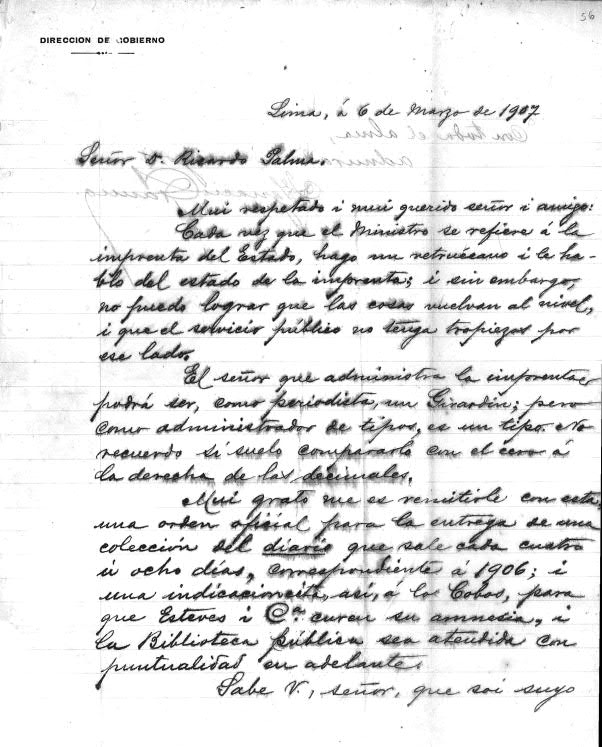 56
DIRECCION DE GOBIERNO
Lima, á 6 de Marzo de 1907
Señor D. Ricardo Palma.
Mui respetado i mui querido señor i amigo:
Cada vez que el Ministro se refiere á la
imprenta del Estado, hago un retruécano i le ha-
blo del estado de la imprenta; i sin embargo,
no puedo lograr que las cosas vuelvan al nivel,
i que el servicio público no tenga tropiezos por
ese lado.
El señor que administra la imprenta
podrá ser, como periodista, un Girardin; pero
como administrador de tipos, es un tipo. No
recuerdo si suelo compararlo con el cero á
la derecha de las decimales.
Mui grato me es remitirle con esta,
una orden oficial para la entrega de una
colección del diario que sale cada cuatro
ú ocho días, correspondiente á 1906; i
una indicacioncita, así, á lo Cobos, para
que Esteves i Cª. curen su amnesia, i
la Biblioteca pública sea atendida con
puntualidad en adelante.
Sabe V., señor, que soi suyo
con toda el alma,